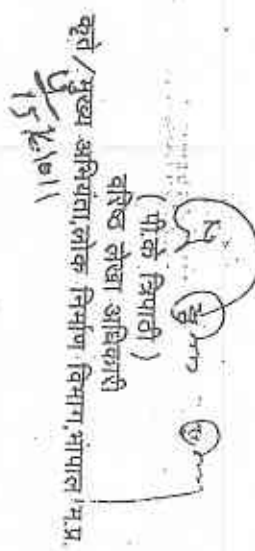 (पी.के. त्रिपाठी)
वरिष्ठ लेखा अधिकारी
कृते/मुख्य अभियंता,लोक निर्माण विभाग,भोपाल म.प्र.